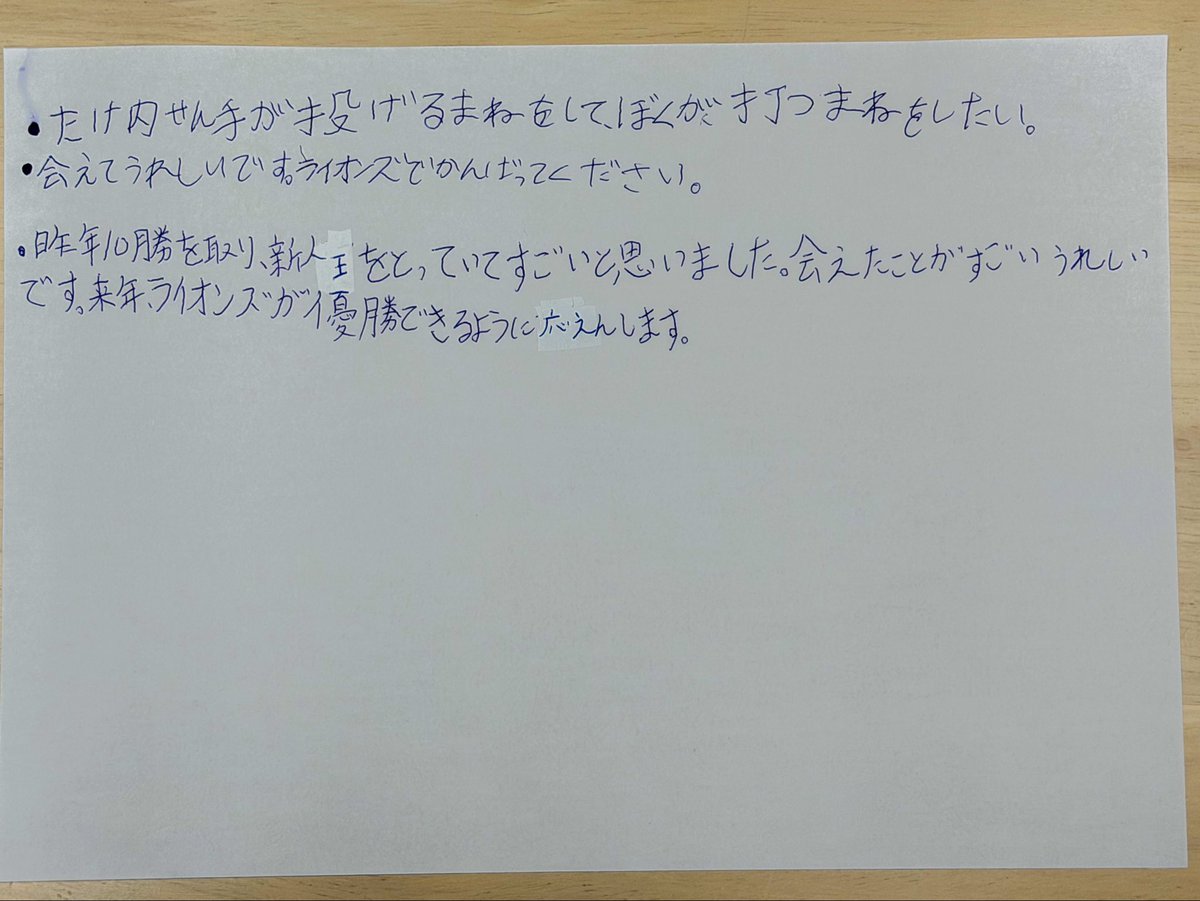 ・たけ内せん手が投げるまねをして、ぼくが、打つまねをしたい。
・会えてうれしいです。ライオンズでがんばってください。
・昨年10勝を取り、新人王をとっていてすごいと思いました。会えたことがすごいうれしい
です。来年、ライオンズが優勝できるように応えんします。